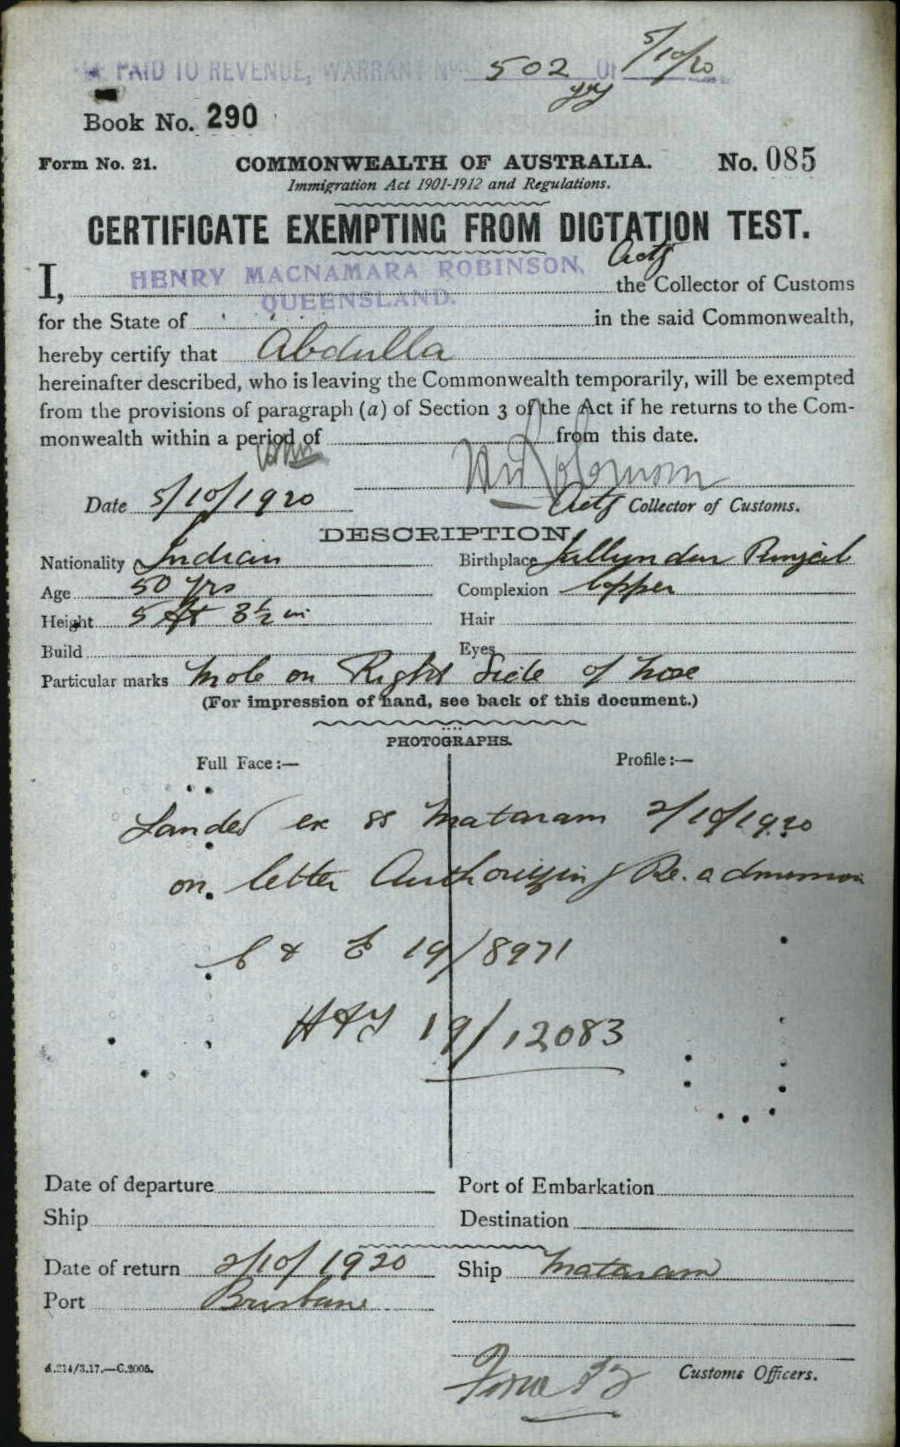 PAID TO REVENUE, WARRANT No. 502 OF 5/10/20
Book No. 290
Form No. 21. COMMONWEALTH OF AUSTRALIA. No. 085
Immigration Act 1901-1912 and Regulations.
CERTIFICATE EXEMPTING FROM DICTATION TEST.
I, HENRY MACNAMARA ROBINSON, Actg the Collector of Customs
for the State of QUEENSLAND. in the said Commonwealth,
hereby certify that Abdulla
hereinafter described, who is leaving the Commonwealth temporarily, will be exempted
from the provisions of paragraph (a) of Section 3 of the Act if he returns to the Com-
monwealth within a period of from this date.
Date 5/10/1920 Actg Collector of Customs.
DESCRIPTION.
Nationality Indian Birthplace Jullyndur Punjab
Age 50 yrs Complexion Copper
Height 5 ft 3½ in Hair
Build Eyes
Particular marks Mole on Right Side of nose
(For impression of hand, see back of this document.)
PHOTOGRAPHS.
Full Face :— Profile :—
Landed ex ss Mataram 2/10/1920
on letter Authorizing Re.admission
C & E 19/8971
H & T 19/12083
Date of departure Port of Embarkation
Ship Destination
Date of return 2/10/1920 Ship Mataram
Port Brisbane
A.214/3.17.—C.2005.
Customs Officers.